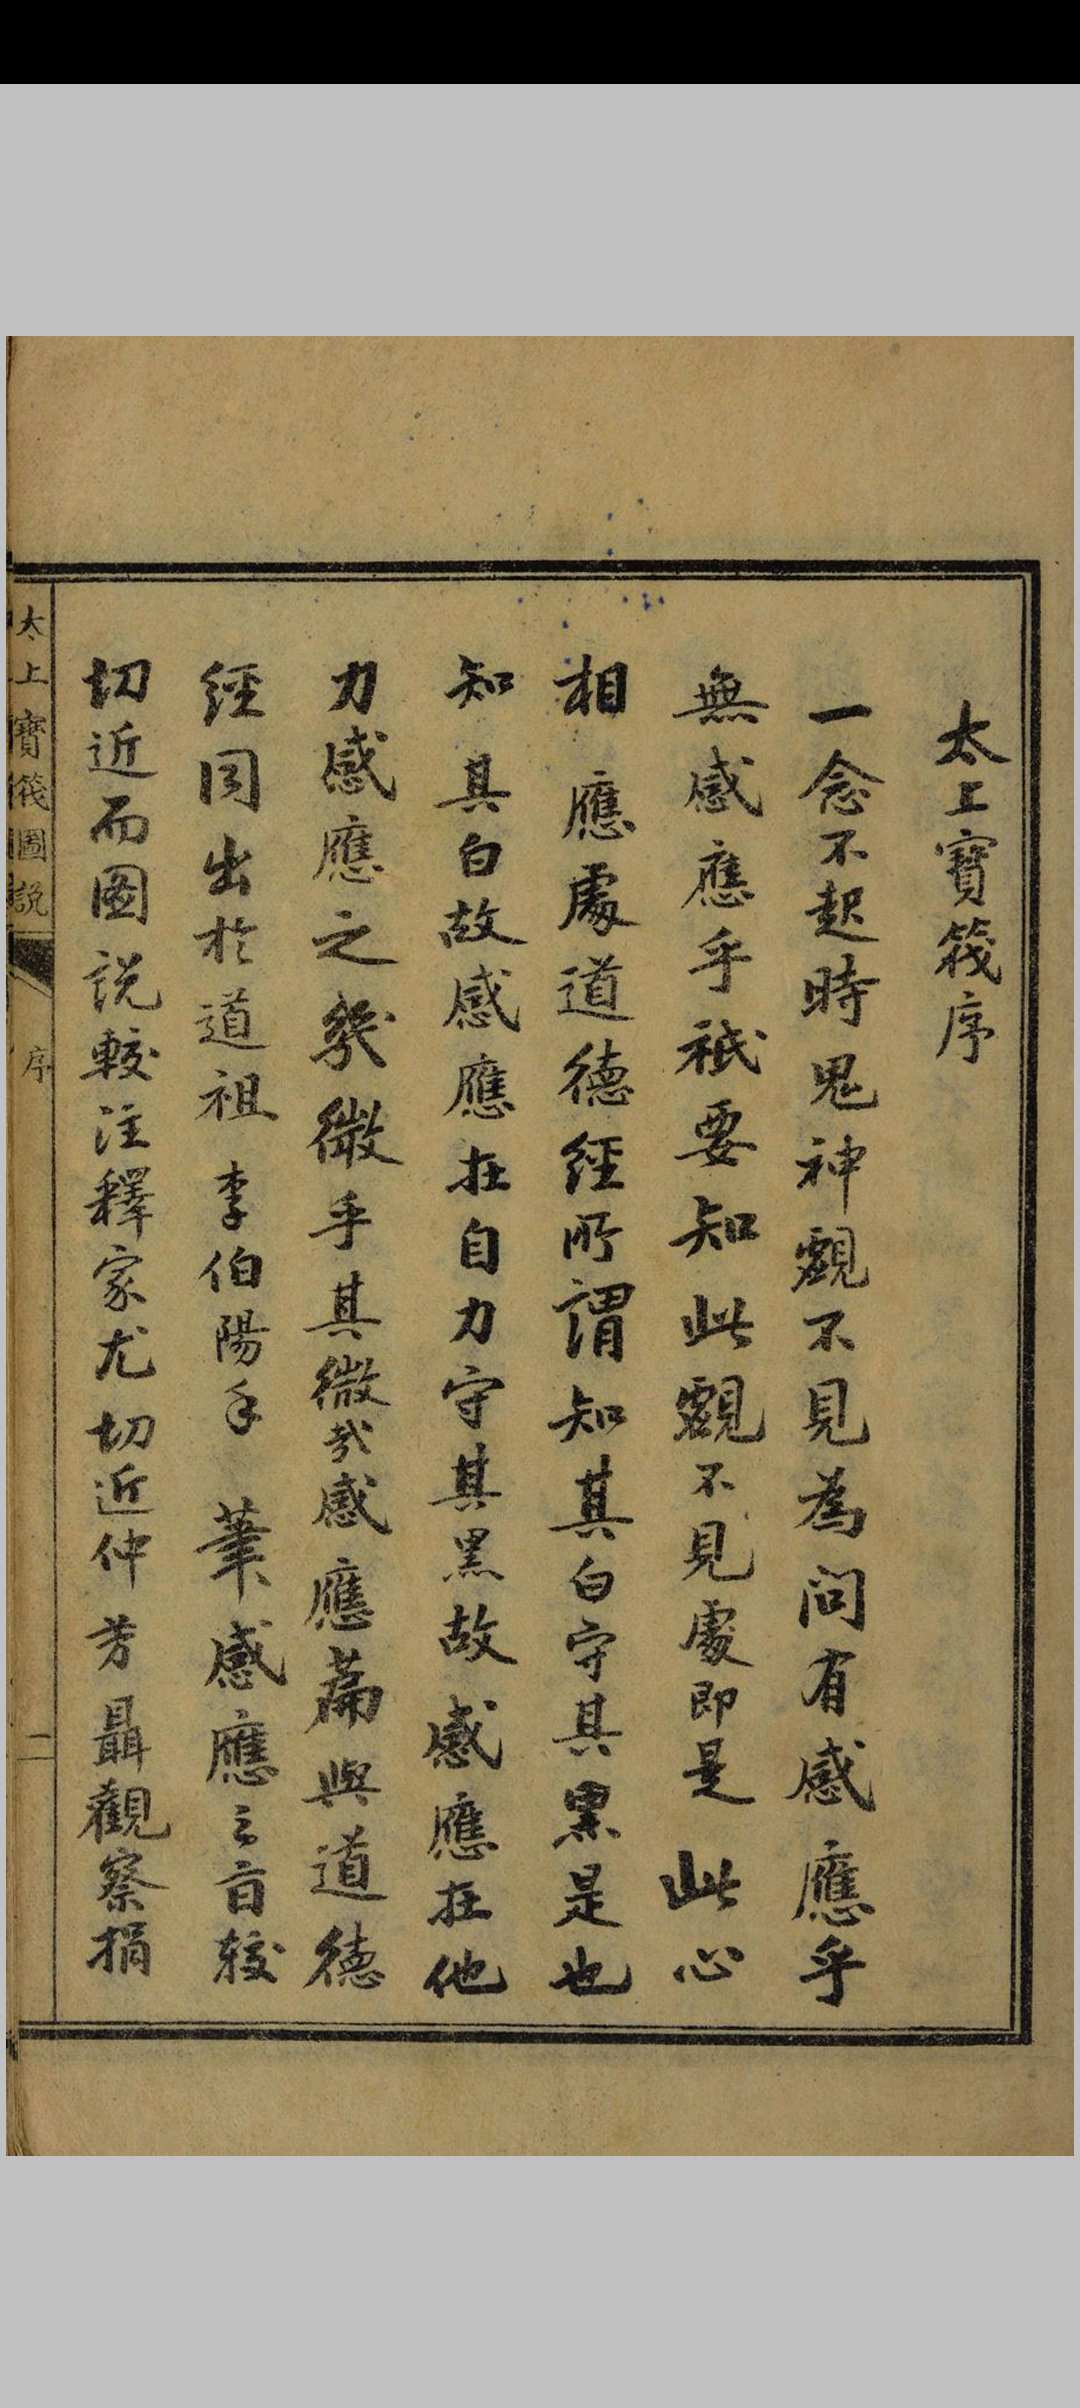 太上寶筏序
一念不起時鬼神覷不見為問有感應乎
無感應乎祇要知此覷不見處即是此心
相應處道德經所謂知其白守其黑是也
知其白故感應在自力守其黑故感應在他
力感應之幾微乎其微哉感應篇與道德
經同出於道祖李伯陽手筆感應之旨較
切近而圖說較注釋家尤切近仲芳聶觀察捐
太上寶筏圖說
序
二